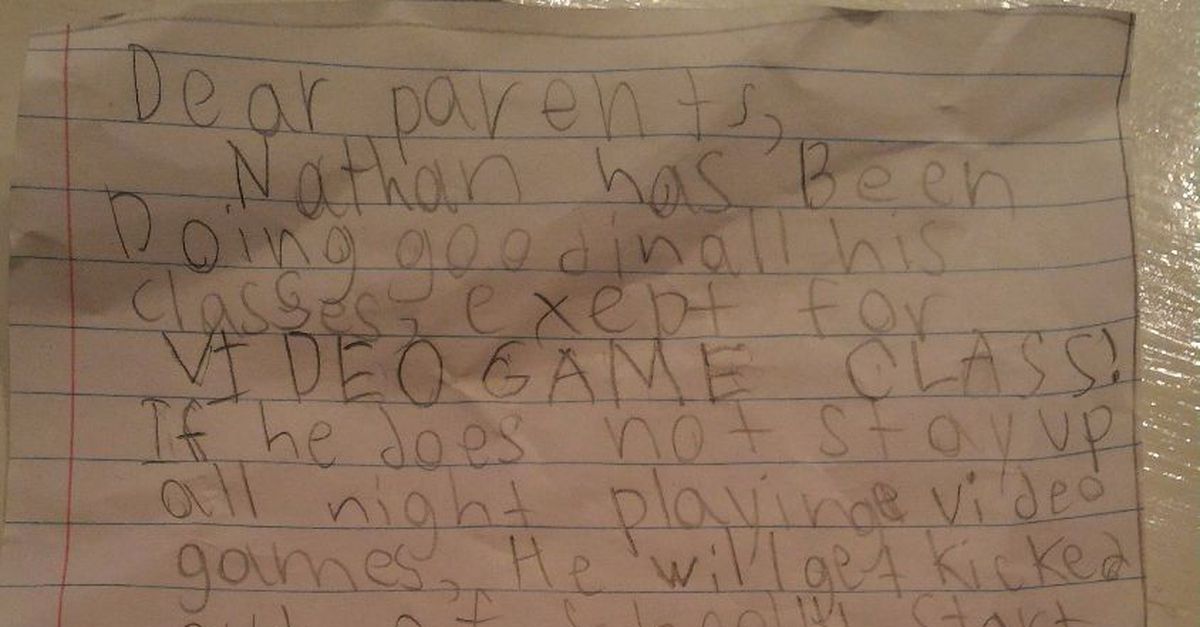 Dear parents,
Nathan has Been
Doing good in all his
classes, exept for
VIDEO GAME CLASS!
If he does not stay up
all night playing video
games, He will get kicked
out of school!!! Start